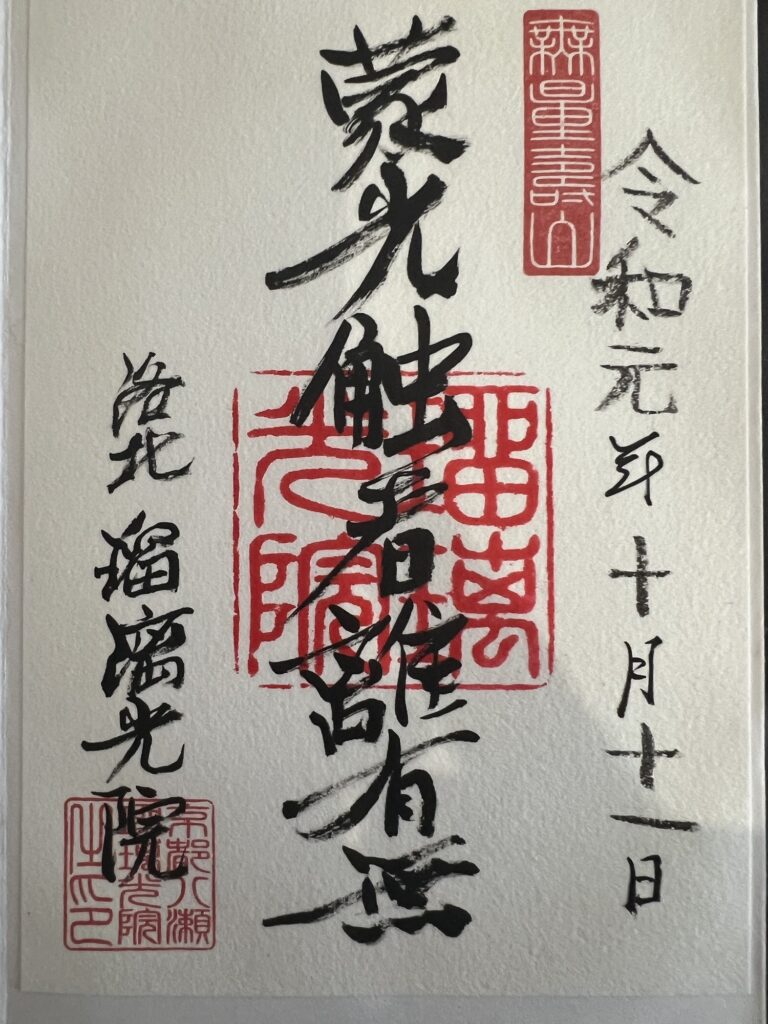 無量壽山
令和元年十月十一日
蒙光触者離有無
瑠璃
光院
洛北 瑠璃光院
京都八瀬
瑠璃光院
之印